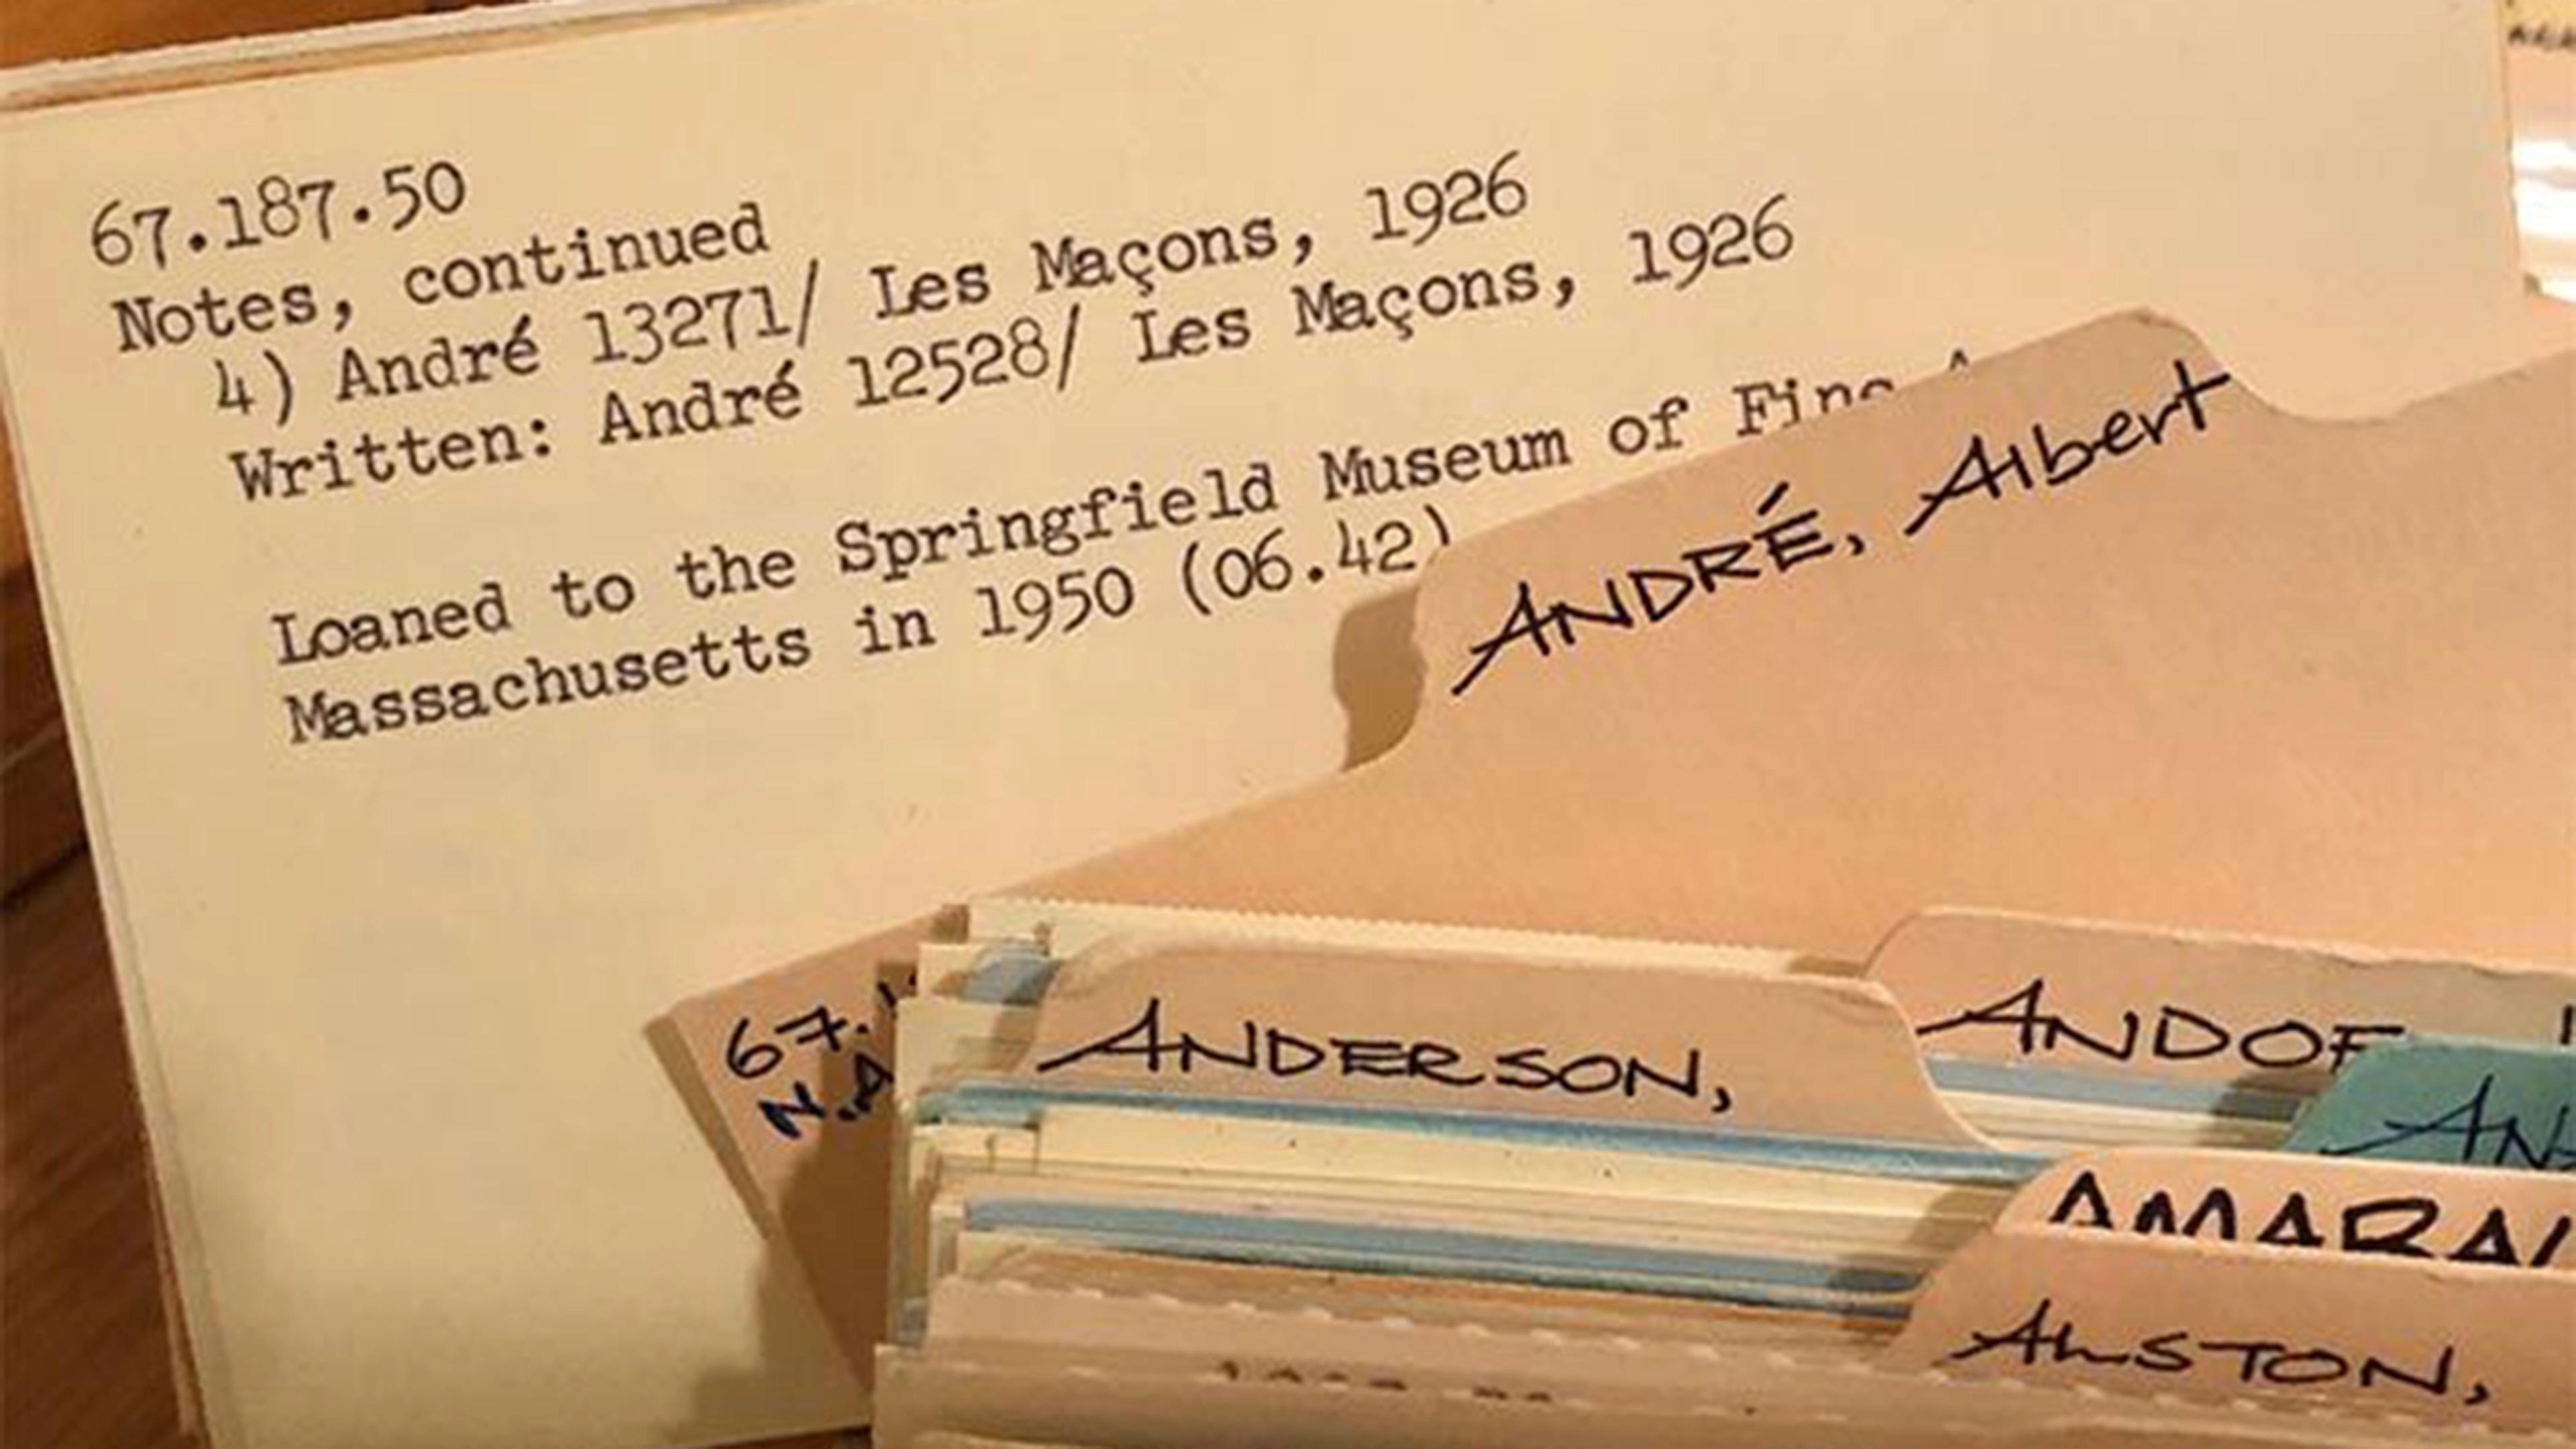 67.187.50
Notes, continued
4) André 13271/ Les Maçons, 1926
Written: André 12528/ Les Maçons, 1926
Loaned to the Springfield Museum of Fine
Massachusetts in 1950 (06.42)
ANDRÉ, Albert
67.
ANDERSON,
ALSTON,